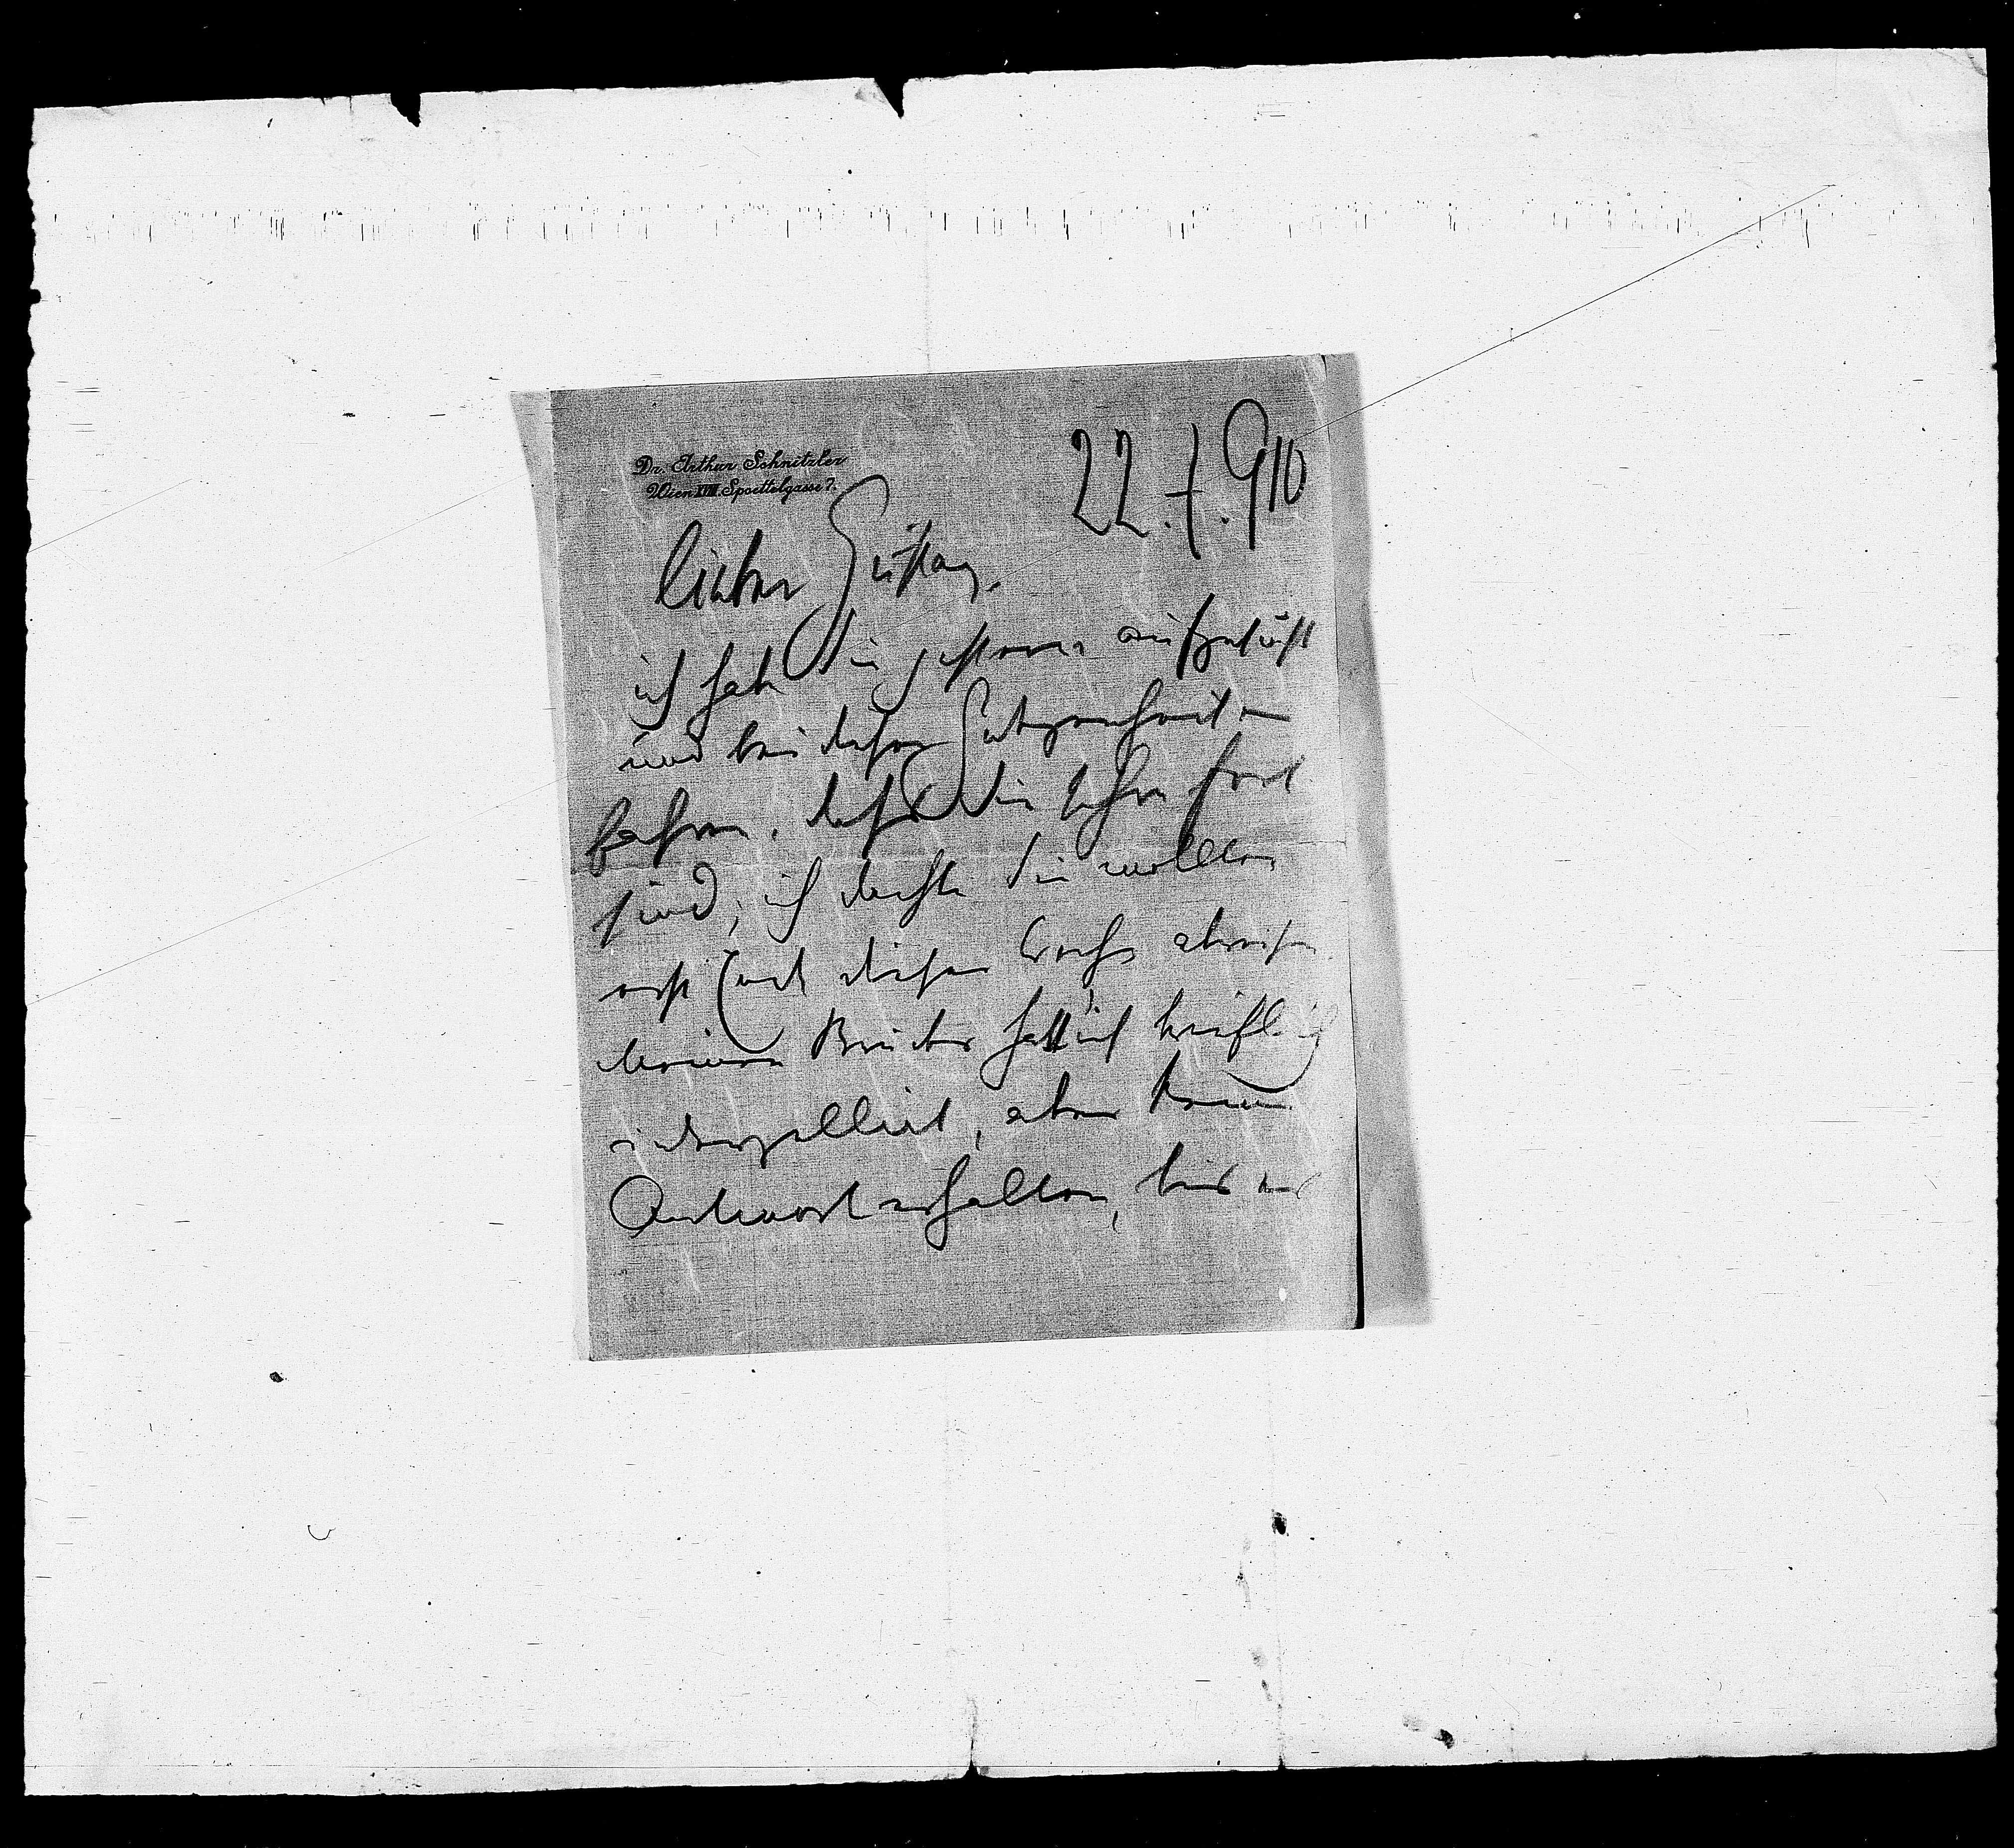 Dr. Arthur Schnitzler
Wien XVIII. Spoettelgasse 7.
22. 7. 910
lieber Gustav,
ich habe Sie gestern aufgesucht
und bei dieser Gelegenheit
erfahren, dass Sie schon fort
sind; ich dachte Sie wollten
erst Ende dieser Woche abreisen.
Meinen Bruder hatt ich brieflich
interpellirt, aber keine
Antwort erhalten, bis er